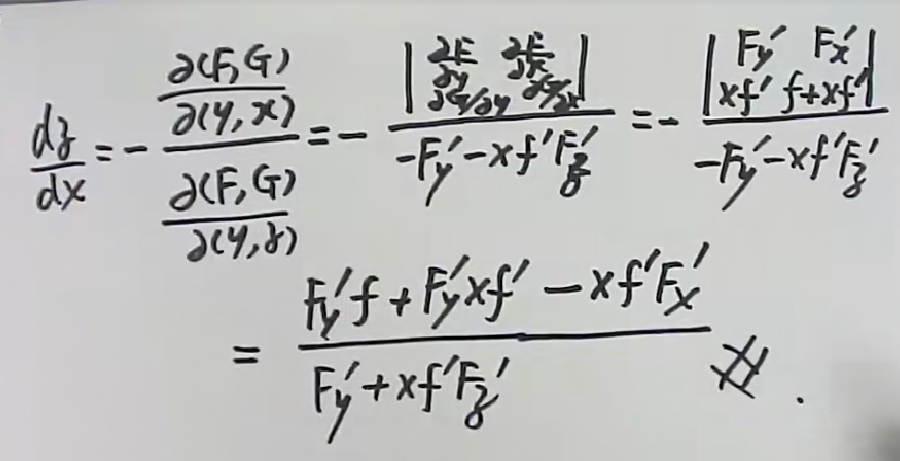 $\frac{dz}{dx} = -\frac{\frac{\partial(F,G)}{\partial(y,x)}}{\frac{\partial(F,G)}{\partial(y,z)}} = -\frac{\begin{vmatrix} \frac{\partial F}{\partial y} & \frac{\partial F}{\partial x} \\ \partial G/\partial y & \partial G/\partial x \end{vmatrix}}{-F_y' - xf'F_z'} = -\frac{\begin{vmatrix} F_y' & F_x' \\ xf' & f+xf' \end{vmatrix}}{-F_y' - xf'F_z'}$
$= \frac{F_y'f + F_y'xf' - xf'F_x'}{F_y' + xf'F_z'}$ #.